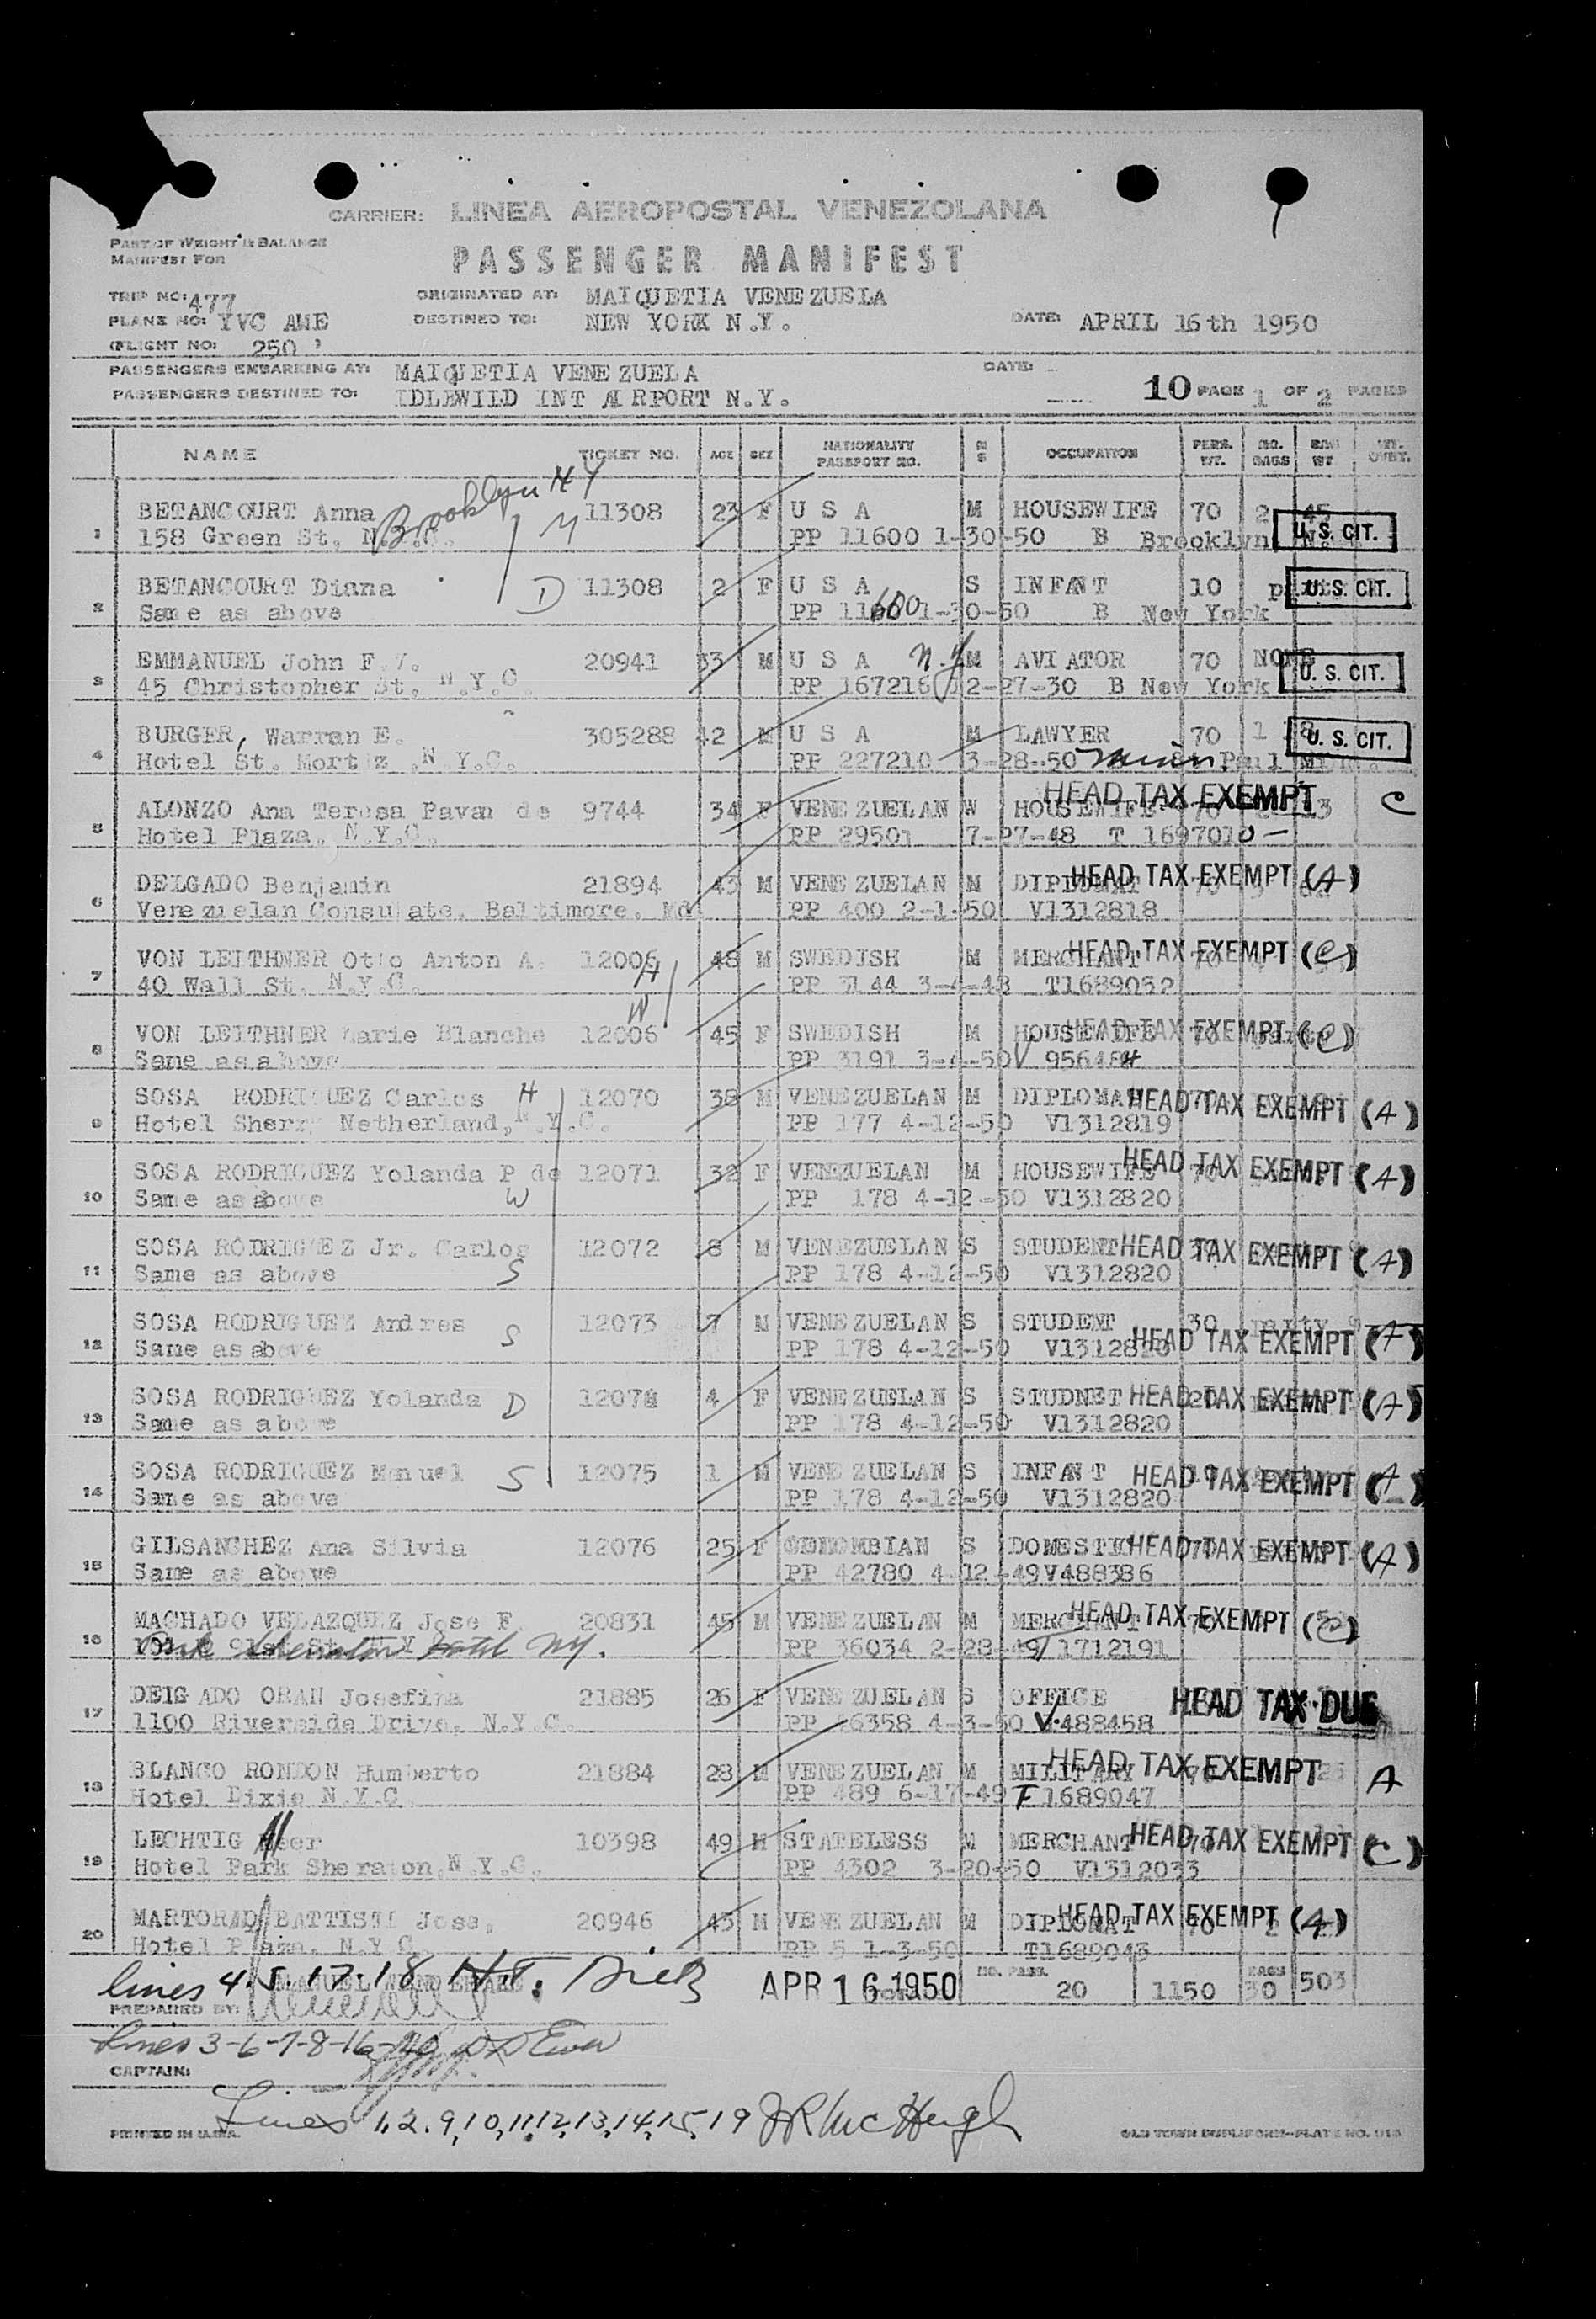 CARRIER: LINEA AEROPOSTAL VENEZOLANA
PART OF WEIGHT & BALANCE
MANIFEST FOR
PASSENGER MANIFEST
TRIP NO: 477
ORIGINATED AT: MAIQUETIA VENEZUELA
PLANE NO: YVC AME
DESTINED TO: NEW YORK N.Y.
DATE: APRIL 16th 1950
(FLIGHT NO: 250)
PASSENGERS EMBARKING AT: MAIQUETIA VENEZUELA
DATE:
PASSENGERS DESTINED TO: IDLEWILD INT AIRPORT N.Y.
10 PAGE 1 OF 2 PAGES
NAME TICKET NO. AGE SEX NATIONALITY PASSPORT NO. M S OCCUPATION PERS. WT. NO. BAGS BAG WT
Brooklyn NY
1 BETANCOURT Anna 11308 23 F U S A M HOUSEWIFE 70 2 45
158 Green St. M PP 11600 1-30-50 B Brooklyn U. S. CIT.
2 BETANCOURT Diana D 11308 2 F U S A S INFANT 10 U. S. CIT.
Same as above PP 11600 1-30-50 B New York
3 EMMANUEL John F. 20941 33 M U S A N.Y. M AVIATOR 70 NONE
45 Christopher St, N.Y.C. PP 167216 2-27-30 B New York U. S. CIT.
4 BURGER, Warran E. 305288 42 M U S A M LAWYER 70 1 U. S. CIT.
Hotel St. Mortiz ,N.Y.C. PP 227210 3-28-50 Paul
HEAD TAX EXEMPT C
5 ALONZO Ana Teresa Pavan de 9744 34 F VENEZUELAN W HOUSEWIFE 70 13
Hotel Plaza, N.Y.C. PP 29501 7-27-48 T 1697010 —
6 DELGADO Benjamin 21894 43 M VENEZUELAN M DIPLOMAT HEAD TAX EXEMPT (A)
Venezuelan Consulate. Baltimore. Md PP 400 2-1-50 V1312818
7 VON LEITHNER Otto Anton A. 12006 H 48 M SWEDISH M MERCHANT HEAD TAX EXEMPT (C)
40 Wall St. N.Y.C. PP 3144 3-4-48 T1689052
W
8 VON LEITHNER Marie Blanche 12006 45 F SWEDISH M HOUSEWIFE 70 HEAD TAX EXEMPT (C)
Same as above PP 3191 3-4-50 V 956484
9 SOSA RODRIGUEZ Carlos H 12070 38 M VENEZUELAN M DIPLOMAT HEAD TAX EXEMPT (A)
Hotel Sherry Netherland, N.Y.C. PP 177 4-12-50 V1312819
10 SOSA RODRIGUEZ Yolanda P de 12071 32 F VENEZUELAN M HOUSEWIFE 70 HEAD TAX EXEMPT (A)
Same as above W PP 178 4-12-50 V1312820
11 SOSA RODRIGUEZ Jr. Carlos 12072 8 M VENEZUELAN S STUDENT HEAD TAX EXEMPT (A)
Same as above S PP 178 4-12-50 V1312820
12 SOSA RODRIGUEZ Andres S 12073 7 M VENEZUELAN S STUDENT 30 party
Same as above PP 178 4-12-50 V1312820 HEAD TAX EXEMPT (A)
13 SOSA RODRIGUEZ Yolanda D 12074 4 F VENEZUELAN S STUDNET 20 HEAD TAX EXEMPT (A)
Same as above PP 178 4-12-50 V1312820
14 SOSA RODRIGUEZ Manuel S 12075 1 M VENEZUELAN S INFANT 10 HEAD TAX EXEMPT (A)
Same as above PP 178 4-12-50 V1312820
15 GILSANCHEZ Ana Silvia 12076 25 F COLOMBIAN S DOMESTIC 70 HEAD TAX EXEMPT (A)
Same as above PP 42780 4-12-49 V488386
16 MACHADO VELAZQUEZ Jose F. 20831 45 M VENEZUELAN M MERCHANT 70 HEAD TAX EXEMPT (C)
Park Sheraton Hotel NY. PP 36034 2-28-49 1712191
17 DELGADO ORAN Josefina 21885 26 F VENEZUELAN S OFFICE HEAD TAX DUE
1100 Riverside Drive, N.Y.C. PP 4-3-50 V.488458
18 BLANCO RONDON Humberto 21884 28 M VENEZUELAN M MILITARY HEAD TAX EXEMPT A
Hotel Dixie N.Y.C. PP 489 6-17-49 T 1689047
19 LECHTIG Meer 10398 49 M STATELESS M MERCHANT 70 HEAD TAX EXEMPT (C)
Hotel Park Sheraton, N.Y.C. PP 4302 3-20-50 V1312033
20 MARTORANO BATTISTI Jose, 20946 43 M VENEZUELAN M DIPLOMAT 70 2 HEAD TAX EXEMPT (A)
Hotel Plaza, N.Y.C. PP 5 1-3-50 T1689043
lines 4.5.17.18 H.T. APR 16 1950 NO. PASS. 20 1150 BAGS 30 503
PREPARED BY:
Lines 3-6-7-8-16-20
CAPTAIN:
Lines 1,2.9,10,11,12,13,14,15,19 JR McHugh
PRINTED IN U.S.A.
OLD TOWN DUPLIFORM-PLATE NO.